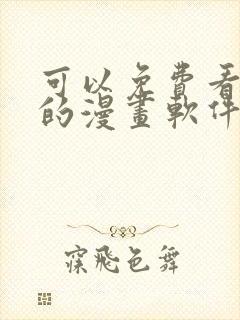 可以免費看
的漫畫軟件
寐飛色舞